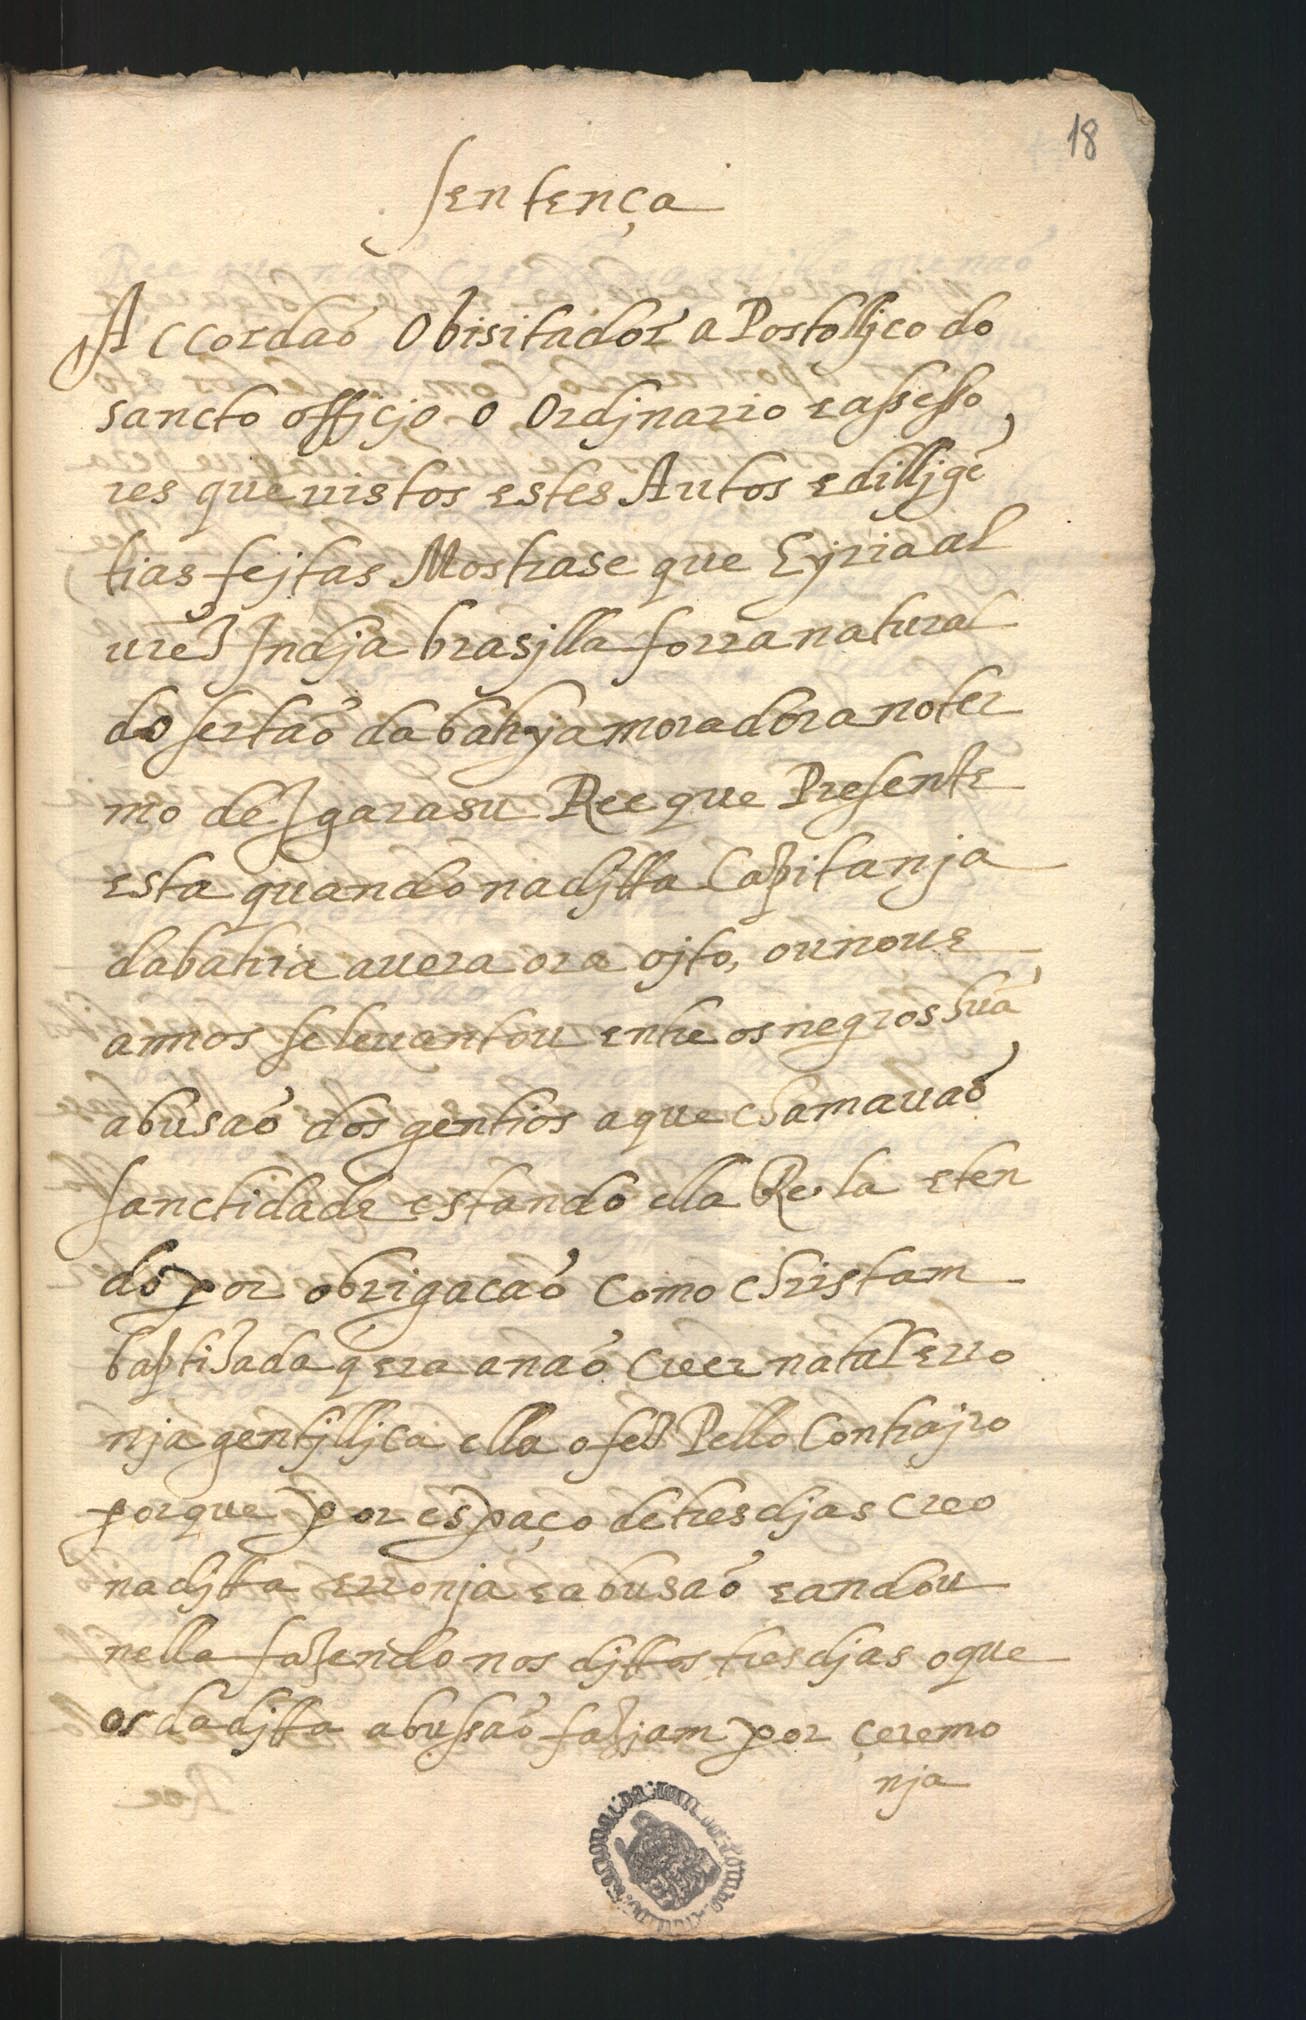 18
Sentença
Accordaõ O bisitador aPostollico do
sancto officjo o Ordjnario e assesso
res que uistos estes Autos e dilljgẽ
tias fejtas Mostrase que Eyria al
urez Indja brasjlla forra natural
do sertaõ da bahya moradora no ter
mo de Igarasu Ree que Presente
esta quando na djtta Capitanja
da bahia auera ora ojto, ou noue
annos se leuantou entre os negros hũa
abusaõ dos gentios a que chamauaõ
sanctidade estando ella Re la e ten
do por obrigacaõ como christam
baptizada q era a naõ creer na tal erro
nja gentjlljca ella o fez Pello Contrajro
porque por espaço de tres djas creo
na djtta erronja e abusaõ e andou
nella fazendo nos djttos tres djas o que
os da djtta abussaõ fazjam por ceremo
nja